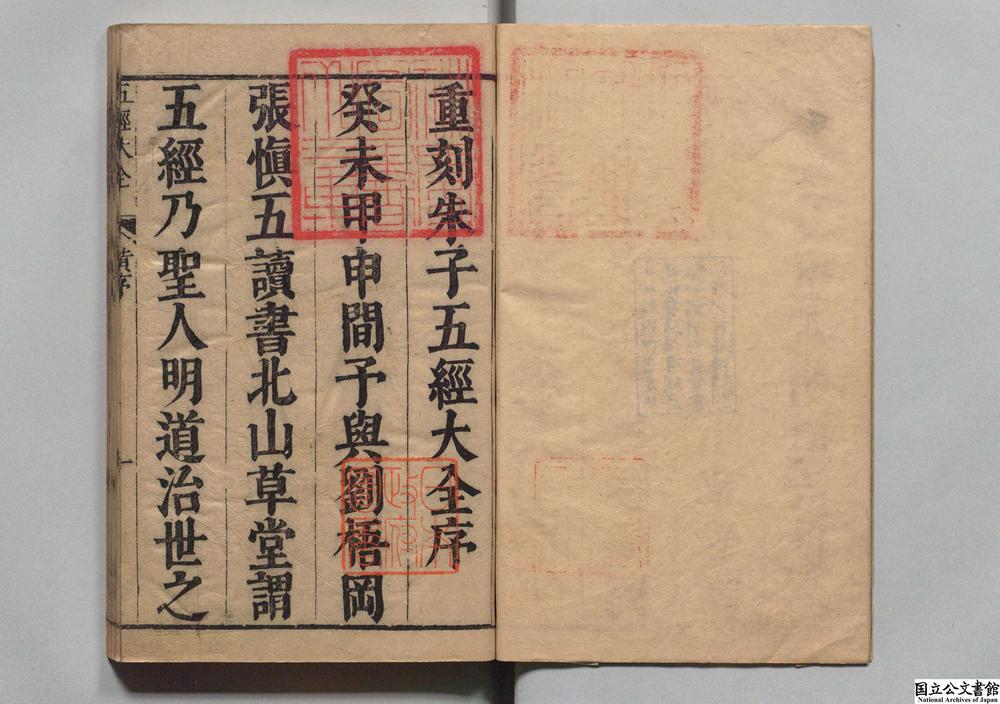 重刻朱子五經大全序
癸未甲申間予與劉梧岡
張愼五讀書北山草堂謂
五經乃聖人明道治世之
五經大全
黃序
一
日本政府圖書
国立公文書館
National Archives of Japan